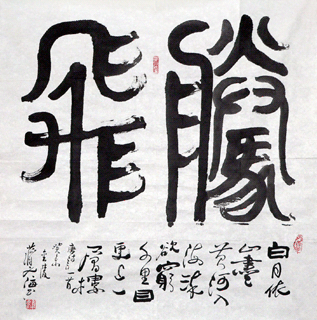 騰飛
白日依
山盡
黄河入
海流
欲窮
千里目
更上
一層樓
唐詩一首